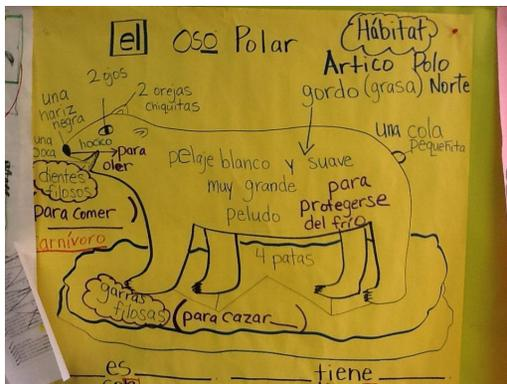 el Oso Polar
Hábitat
Artico Polo
Norte
gordo (grasa)
2 ojos
2 orejas
chiquitas
una
nariz
negra
una
boca
hocico
para
oler
dientes
filosos
para comer
Carnívoro
una cola
pequeñita
pelaje blanco y suave
muy grande
peludo
para
protegerse
del frío
4 patas
garras
filosas
(para cazar )
es . tiene